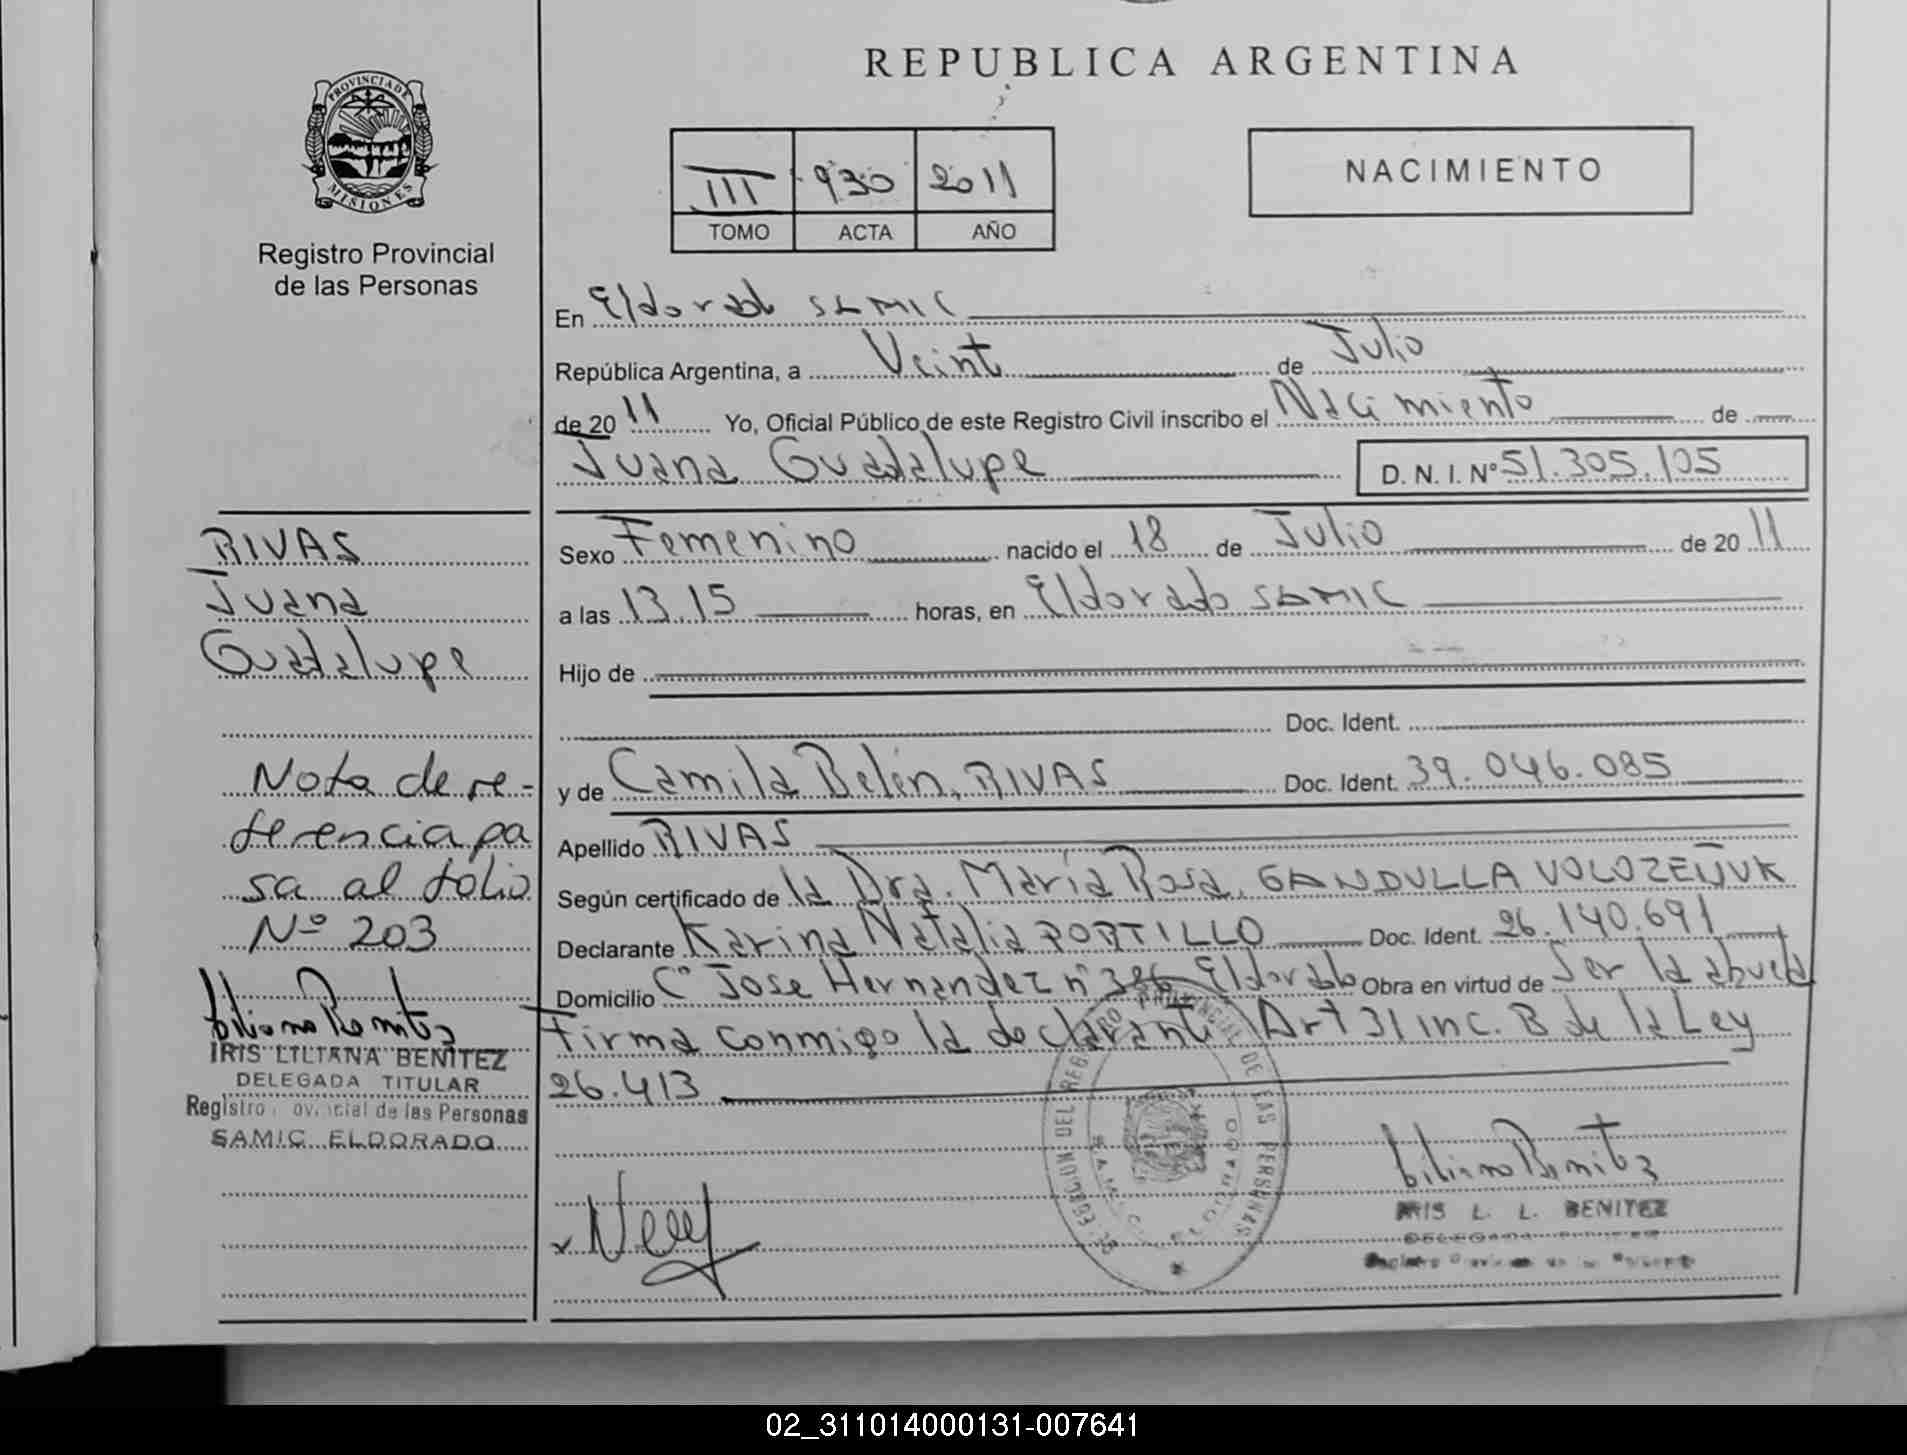 REPUBLICA ARGENTINA
PROVINCIA DE MISIONES
Registro Provincial
de las Personas
III 930 2011
TOMO ACTA AÑO
NACIMIENTO
En Eldorado SAMIC
República Argentina, a Veinte de Julio
de 2011 Yo, Oficial Público de este Registro Civil inscribo el Nacimiento de
Juana Guadalupe D. N. I. Nº 51.305.105
Sexo Femenino nacido el 18 de Julio de 2011
a las 13.15 horas, en Eldorado SAMIC
Hijo de
Doc. Ident.
y de Camila Belén, RIVAS Doc. Ident. 39.046.085
Apellido RIVAS
Según certificado de la Dra. María Rosa, GANDULLA VOLOZEÑUK
Declarante Karina Natalia PORTILLO Doc. Ident. 26.140.691
Domicilio Cº Jose Hernandez nº 386 Eldorado Obra en virtud de Ser la abuela
Firma conmigo la declarante Art 31 inc. B de la Ley
26.413
RIVAS
Juana
Guadalupe
Nota de re-
ferencia pa
sa al folio
Nº 203
Liliana Benitez
IRIS LILIANA BENITEZ
DELEGADA TITULAR
Registro Provincial de las Personas
SAMIC ELDORADO
DELEGACION DEL REGISTRO PROVINCIAL DE LAS PERSONAS
S.A.M.I.C. ELDORADO
Liliana Benitez
IRIS L. L. BENITEZ
DELEGADA TITULAR
02_311014000131-007641